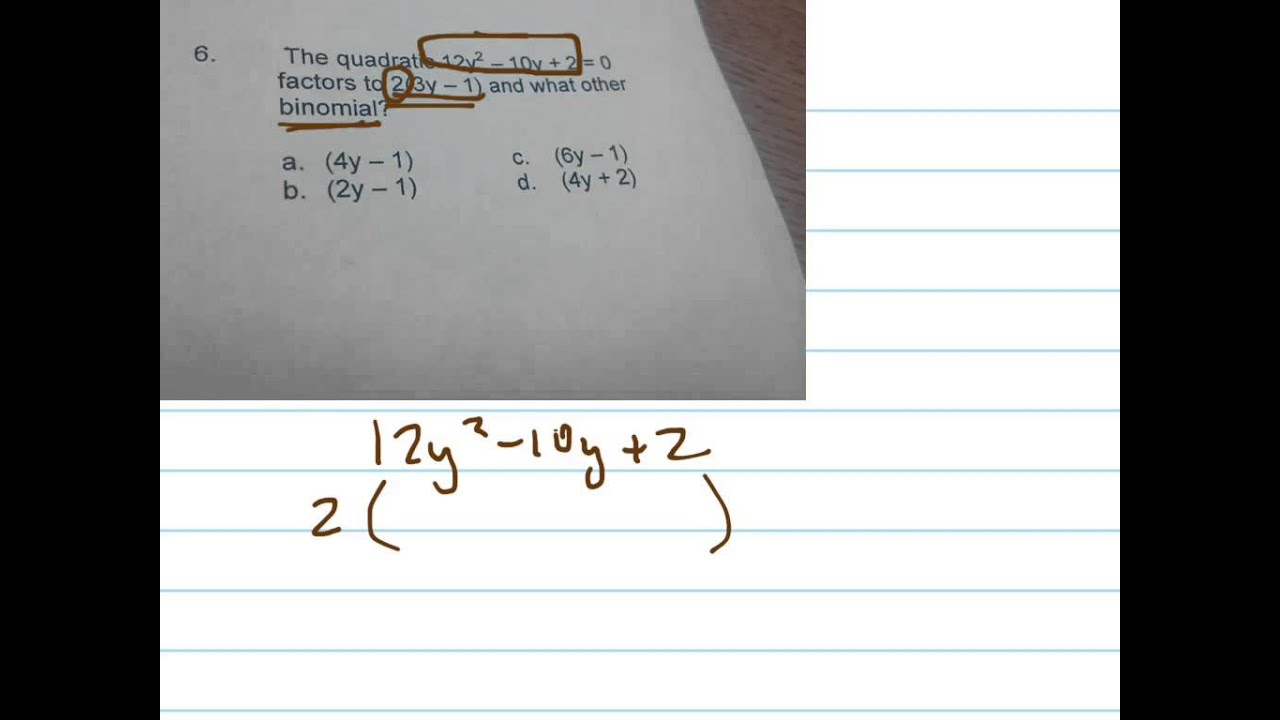 6. The quadratic 12y² – 10y + 2 = 0
factors to 2(3y – 1) and what other
binomial?
a. (4y – 1) c. (6y – 1)
b. (2y – 1) d. (4y + 2)
12y² – 10y + 2
2 ( )